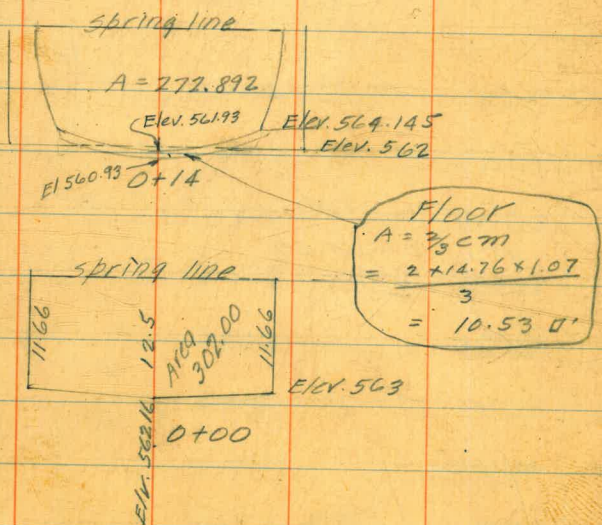 spring line
A = 272.892
Elev. 561.93
Elev. 564.145
Elev. 562
El 560.93
0+14
Floor
A = 2/3 cm
= 2 × 14.76 × 1.07
3
= 10.53 □'
spring line
11.66
12.5
Area
302.00
11.66
Elev. 563
Elv. 562.16
0+00